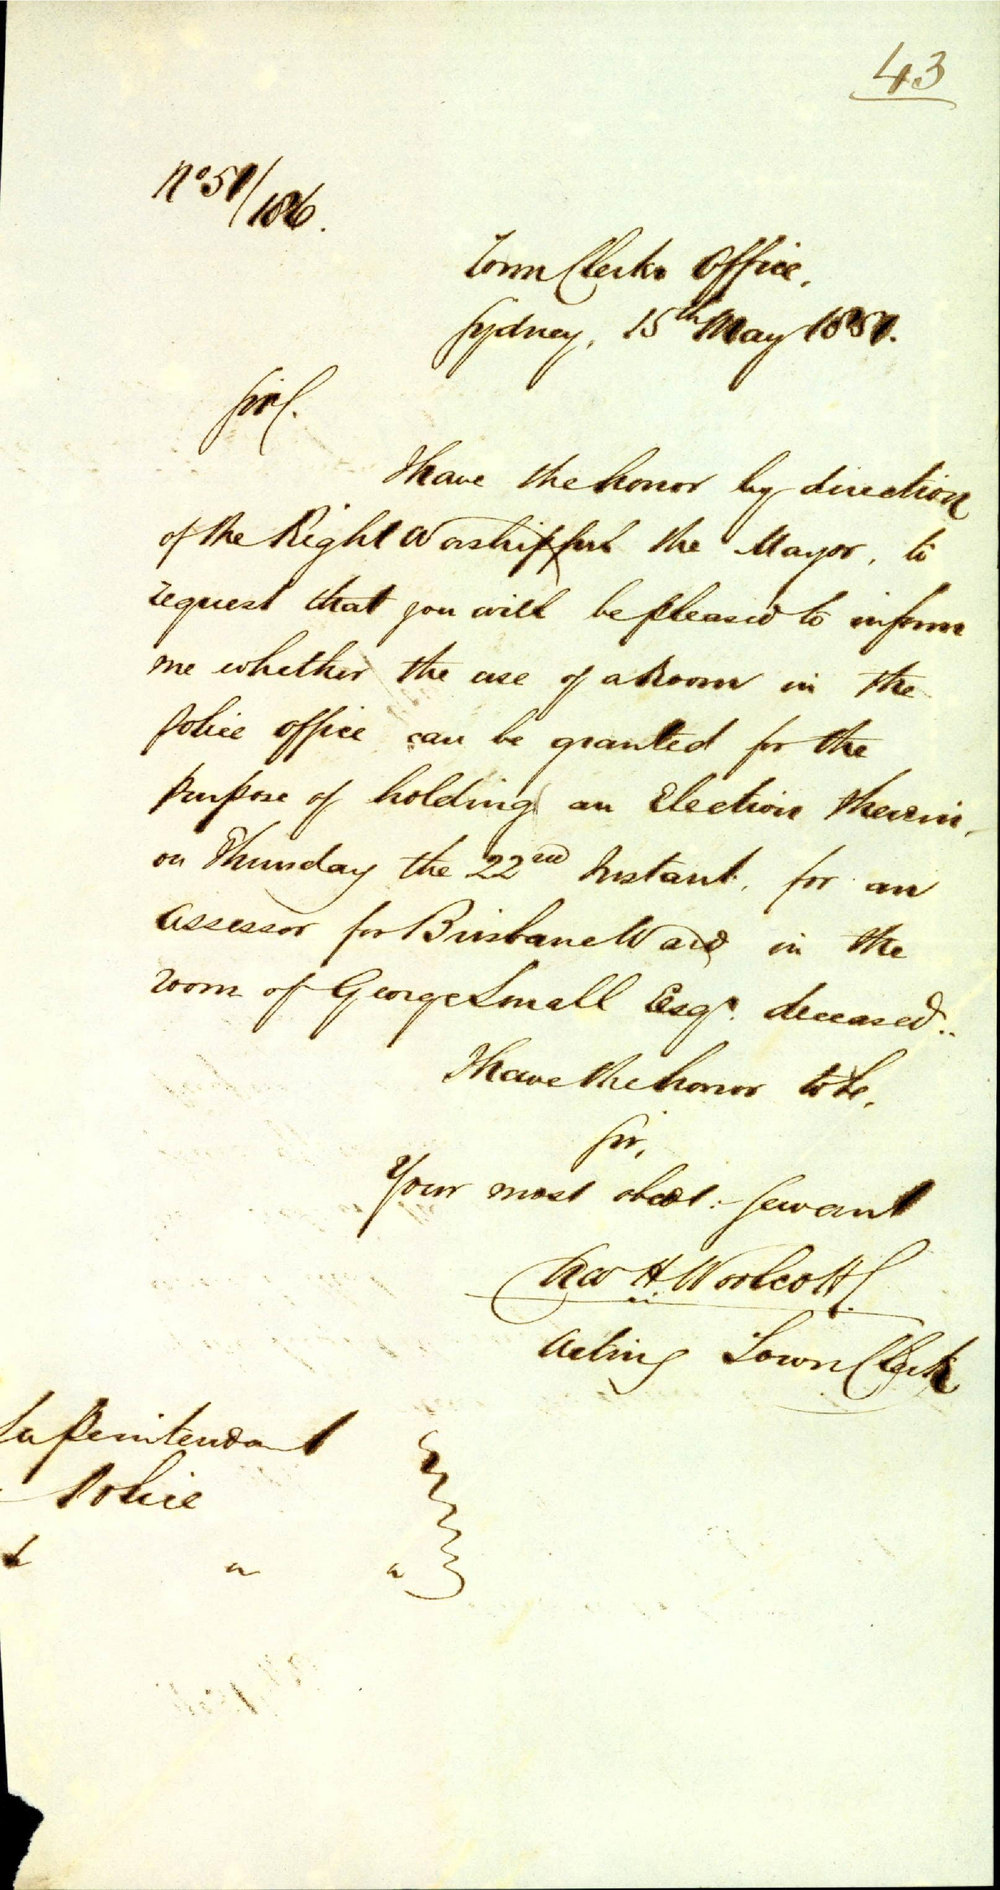 43
No 51/186.
Town Clerks Office,
Sydney, 15th May 1851.
Sir,
I have the honor by direction
of the Right Worshipful the Mayor, to
request that you will be pleased to inform
me whether the use of a Room in the
Police Office can be granted for the
purpose of holding an Election therein,
on Thursday the 22nd Instant, for an
Assessor for Brisbane Ward in the
room of George Small Esqr. deceased..
I have the honor to be,
Sir,
Your most obedt. Servant
Chas H. Woolcott
Acting Town Clerk
Superintendant
Police